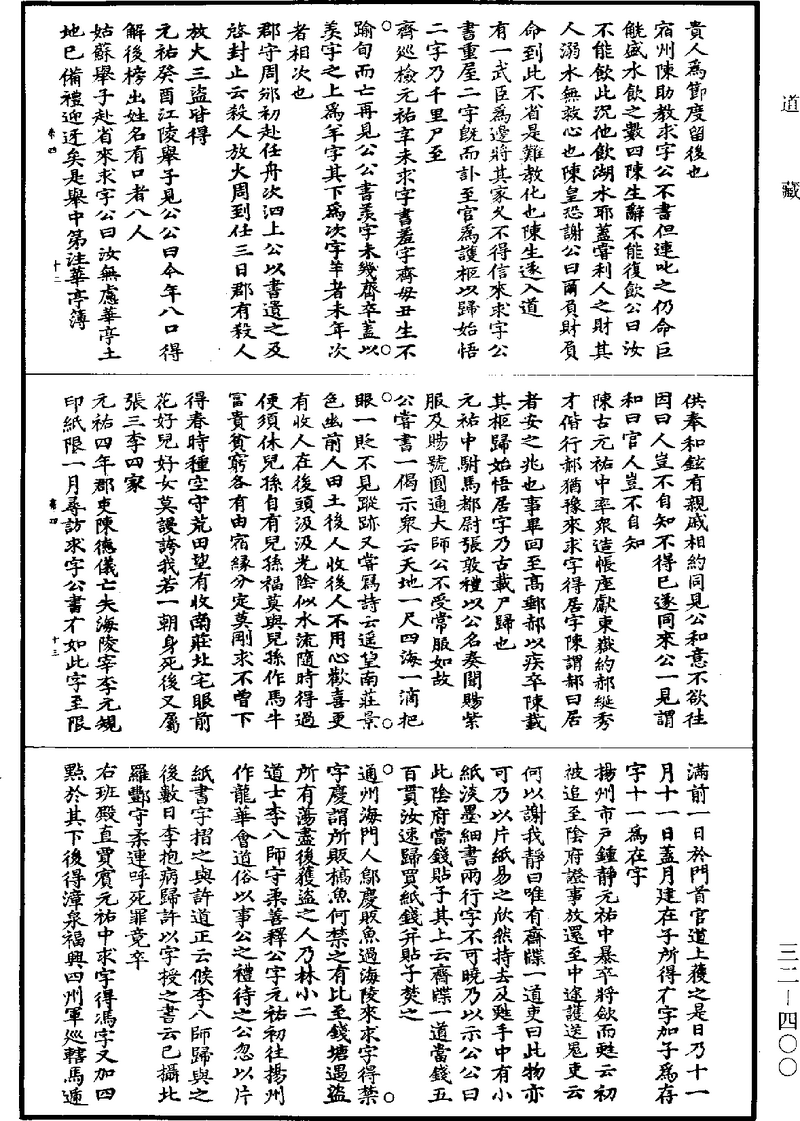 道藏
三二—四〇〇
貴人爲節度留後也
宿州陳助教求字公不書但連叱之仍命巨
觥盛水飲之數四陳生辭不能復飲公曰汝
不能飲此況他飲湖水耶蓋嘗利人之財其
人溺水無救心也陳皇恐謝公曰爾負財負
命到此不省是難教化也陳生遂入道
有一武臣爲邊將其家久不得信來求字公
書重屋二字旣而訃至官爲護柩以歸始悟
二字乃千里尸至
齊巡檢元祐辛未求字書羞字齊毋丑生不
踰旬而亡再見公公書羨字未幾齊卒蓋以
羨字之上爲羊字其下爲次字羊者未年次
者相次也
郡守周邠初赴任舟次泗上公以書遺之及
啓封止云殺人放火周到任三日郡有殺人
放火三盜皆得
元祐癸酉江陵舉子見公公曰今年八口得
解後榜出姓名有口者八人
姑蘇舉子赴省來求字公曰汝無慮華亭土
地已備禮迎迓矣是舉中第注華亭簿
卷四 十二
供奉和鉉有親戚相約同見公和意不欲往
因曰人豈不自知不得已遂同來公一見謂
和曰官人豈不自知
陳古元祐中率衆造帳座獻東嶽約郝綖秀
才偕行郝猶豫來求字得居字陳謂郝曰居
者安之兆也事畢回至高郵郝以疾卒陳載
其柩歸始悟居字乃古載尸歸也
元祐中駙馬都尉張敦禮以公名奏聞賜紫
服及賜號圓通大師公不受常服如故
公嘗書一偈示衆云天地一尺四海一滴把
眼一貶不見蹤跡又嘗寫詩云遥望南莊景
色幽前人田土後人收後人不用心歡喜更
有收人在後頭汲汲光陰似水流隨時得過
便須休兒孫自有兒孫福莫與兒孫作馬牛
富貴貧窮各有由宿緣分定莫剛求不曾下
得春時種空守荒田望有收南莊北宅眼前
花好兒好女莫謾誇我若一朝身死後又屬
張三李四家
元祐四年郡吏陳德儀亡失海陵宰李元規
印紙限一月尋訪求字公書才如此字至限
卷四 十三
滿前一日於門首官道上獲之是日乃十一
月十一日蓋月建在子所得才字加子爲存
字十一爲在字
揚州市戶鍾靜元祐中暴卒將歛而甦云初
被追至陰府證事放還至中途護送鬼吏云
何以謝我靜曰唯有齋牒一道吏曰此物亦
可乃以片紙易之欣然持去及甦手中有小
紙淡墨細書兩行字不可曉乃以示公公曰
此陰府當錢貼子其上云齊牒一道當錢五
百貫汝速歸買紙錢并貼子焚之
通州海門人鄔慶販魚過海陵來求字得禁
字慶謂所販槁魚何禁之有比至錢塘遇盜
所有蕩盡後獲盜之人乃林小二
道士李八師守柔善釋公字元祐初往揚州
作龍華會道俗以事公之禮待之公忽以片
紙書字摺之與許道正云候李八師歸與之
後數日李抱病歸許以字授之書云已攝北
羅酆守柔連呼死罪竟卒
右班殿直賈賓元祐中求字得馮字又加四
點於其下後得漳泉福興四州軍巡轄馬遞